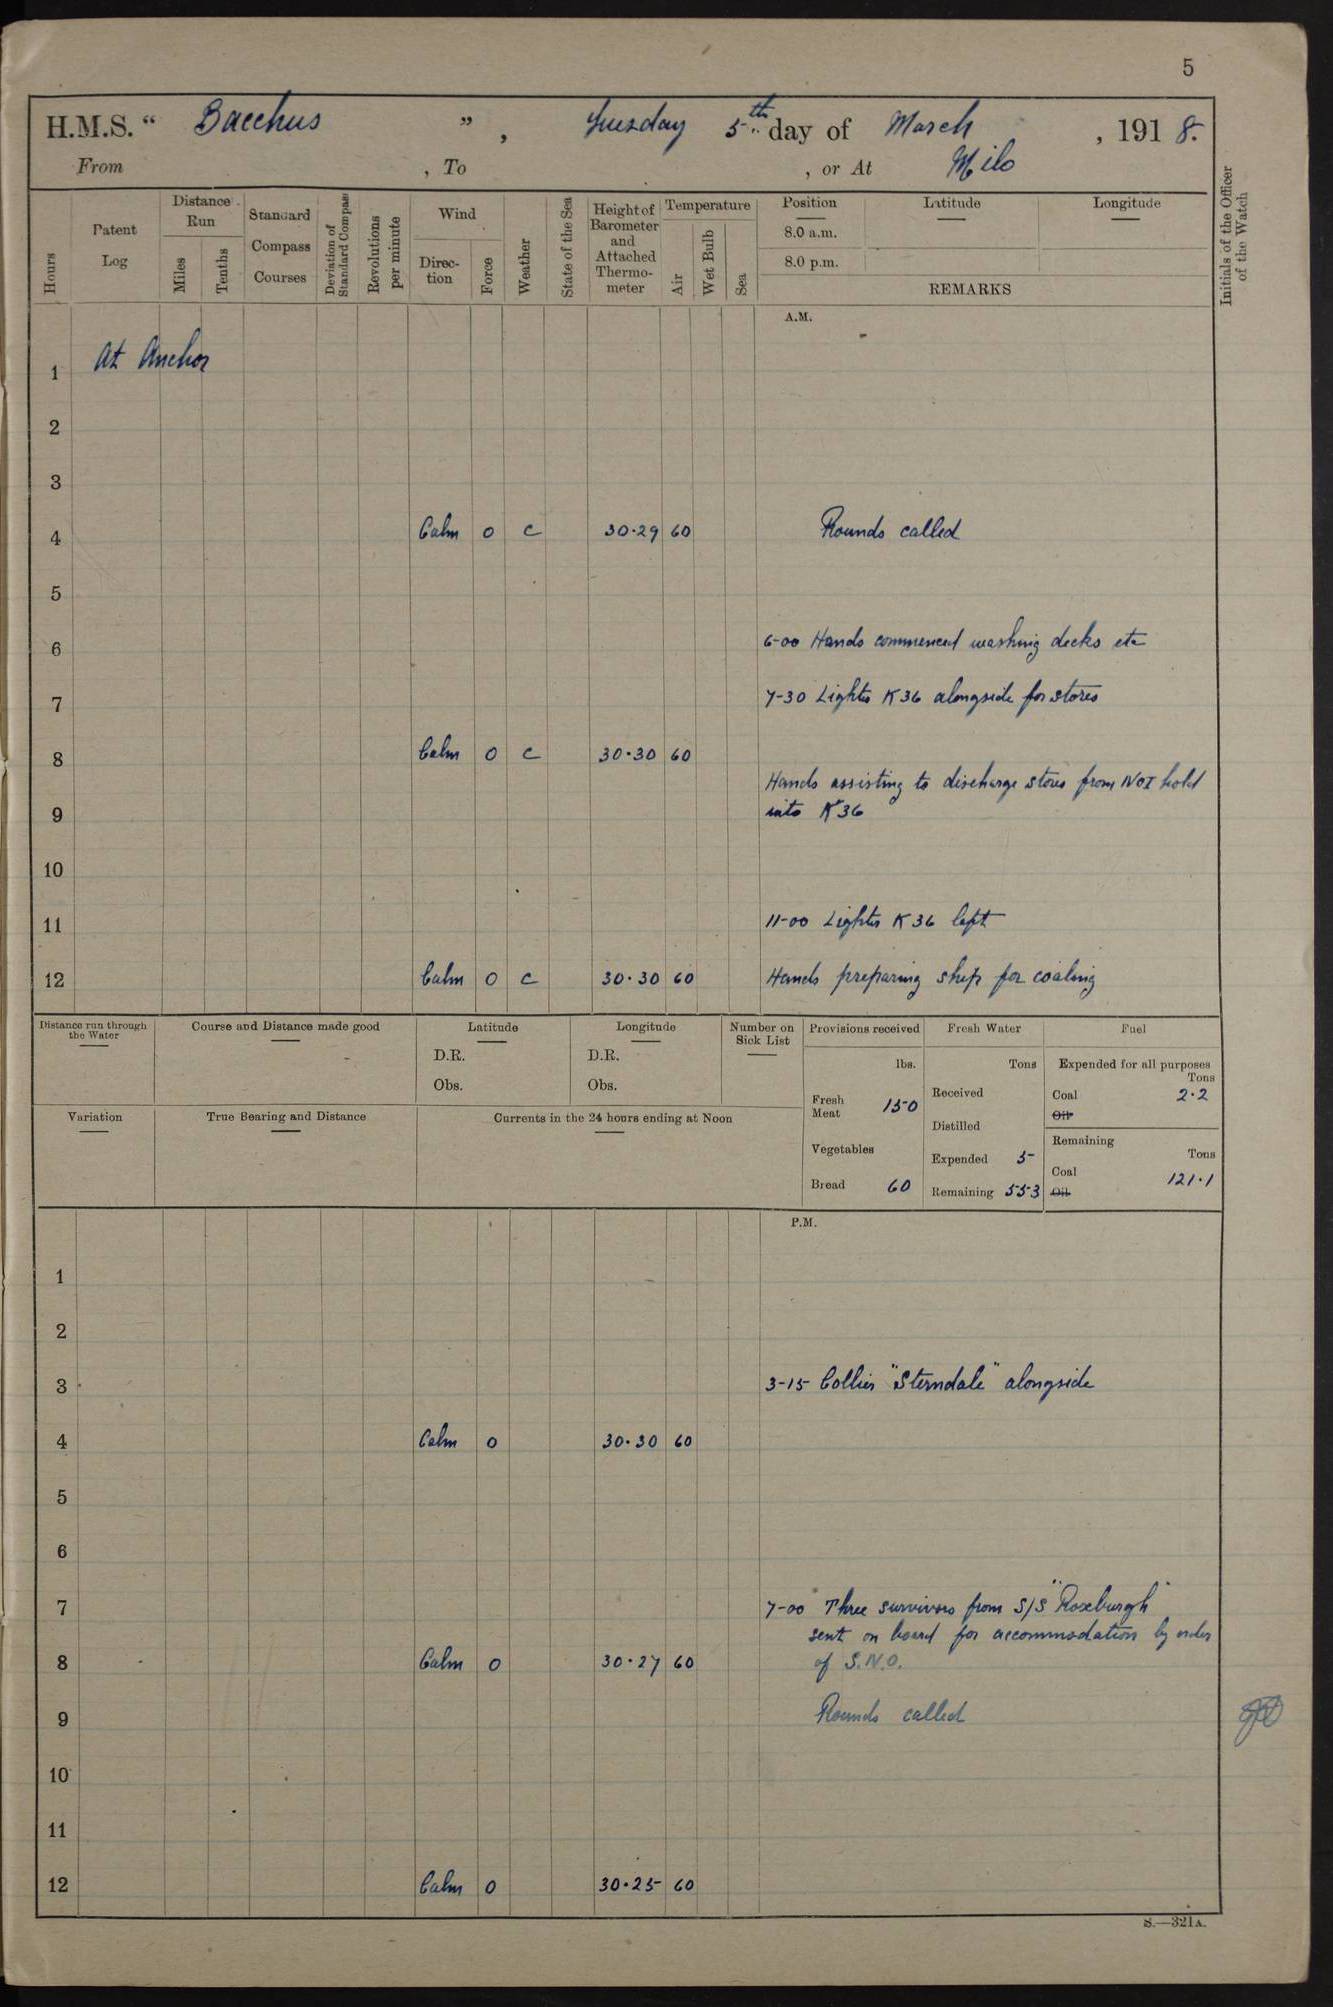 5
H.M.S. “ Bacchus ” , Tuesday 5th day of March , 1918.
From , To , or At Milo
Hours
Patent Log
Distance Run
Miles
Tenths
Standard Compass Courses
Deviation of Standard Compass
Revolutions per minute
Wind
Direc-tion
Force
Weather
State of the Sea
Height of Barometer and Attached Thermo-meter
Temperature
Air
Wet Bulb
Sea
Position Latitude Longitude
8.0 a.m.
8.0 p.m.
REMARKS
Initials of the Officer of the Watch
A.M.
1 At Anchor
2
3
4 Calm 0 c 30·29 60 Rounds called
5
6 6-00 Hands commenced washing decks etc
7 7-30 Lighter K36 alongside for stores
8 Calm 0 c 30·30 60
Hands assisting to discharge stores from No I hold
9 into K36
10
11 11-00 Lighter K36 left
12 Calm 0 c 30·30 60 Hands preparing ship for coaling
Distance run through the Water
Course and Distance made good
Latitude
D.R.
Obs.
Longitude
D.R.
Obs.
Number on Sick List
Variation
True Bearing and Distance
Currents in the 24 hours ending at Noon
Provisions received
lbs.
Fresh Meat 150
Vegetables
Bread 60
Fresh Water
Tons
Received
Distilled
Expended 5
Remaining 553
Fuel
Expended for all purposes
Tons
Coal 2·2
Oil
Remaining
Tons
Coal 121·1
Oil
P.M.
1
2
3 3-15 Collier "Sterndale" alongside
4 Calm 0 30·30 60
5
6
7 7-00 Three survivors from S/S "Roxburgh"
sent on board for accommodation by order
8 Calm 0 30·27 60 of S.N.O.
9 Rounds called
10
11
12 Calm 0 30·25 60
S.—321A.